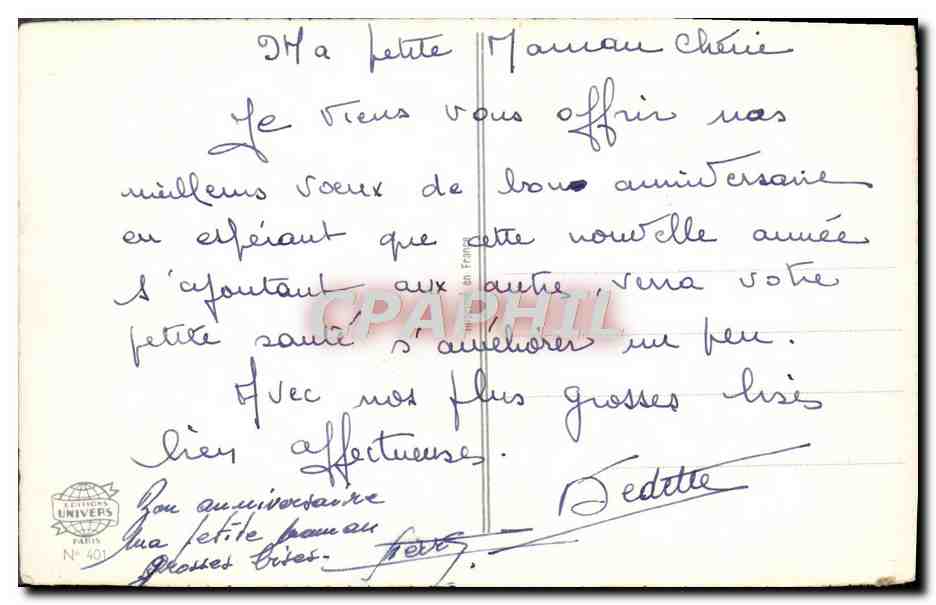 Ma petite Maman Chérie
Je viens vous offrir nos
meilleurs voeux de bon anniversaire
en espérant que cette nouvelle année
s'ajoutant aux autres, verra votre
petite santé s'améliorer un peu.
Avec nos plus grosses bises
bien affectueuses.
Dedette
Bon anniversaire
ma petite maman
grosses bises.
en France
CPAPHIL
EDITIONS
UNIVERS
PARIS
N° 401